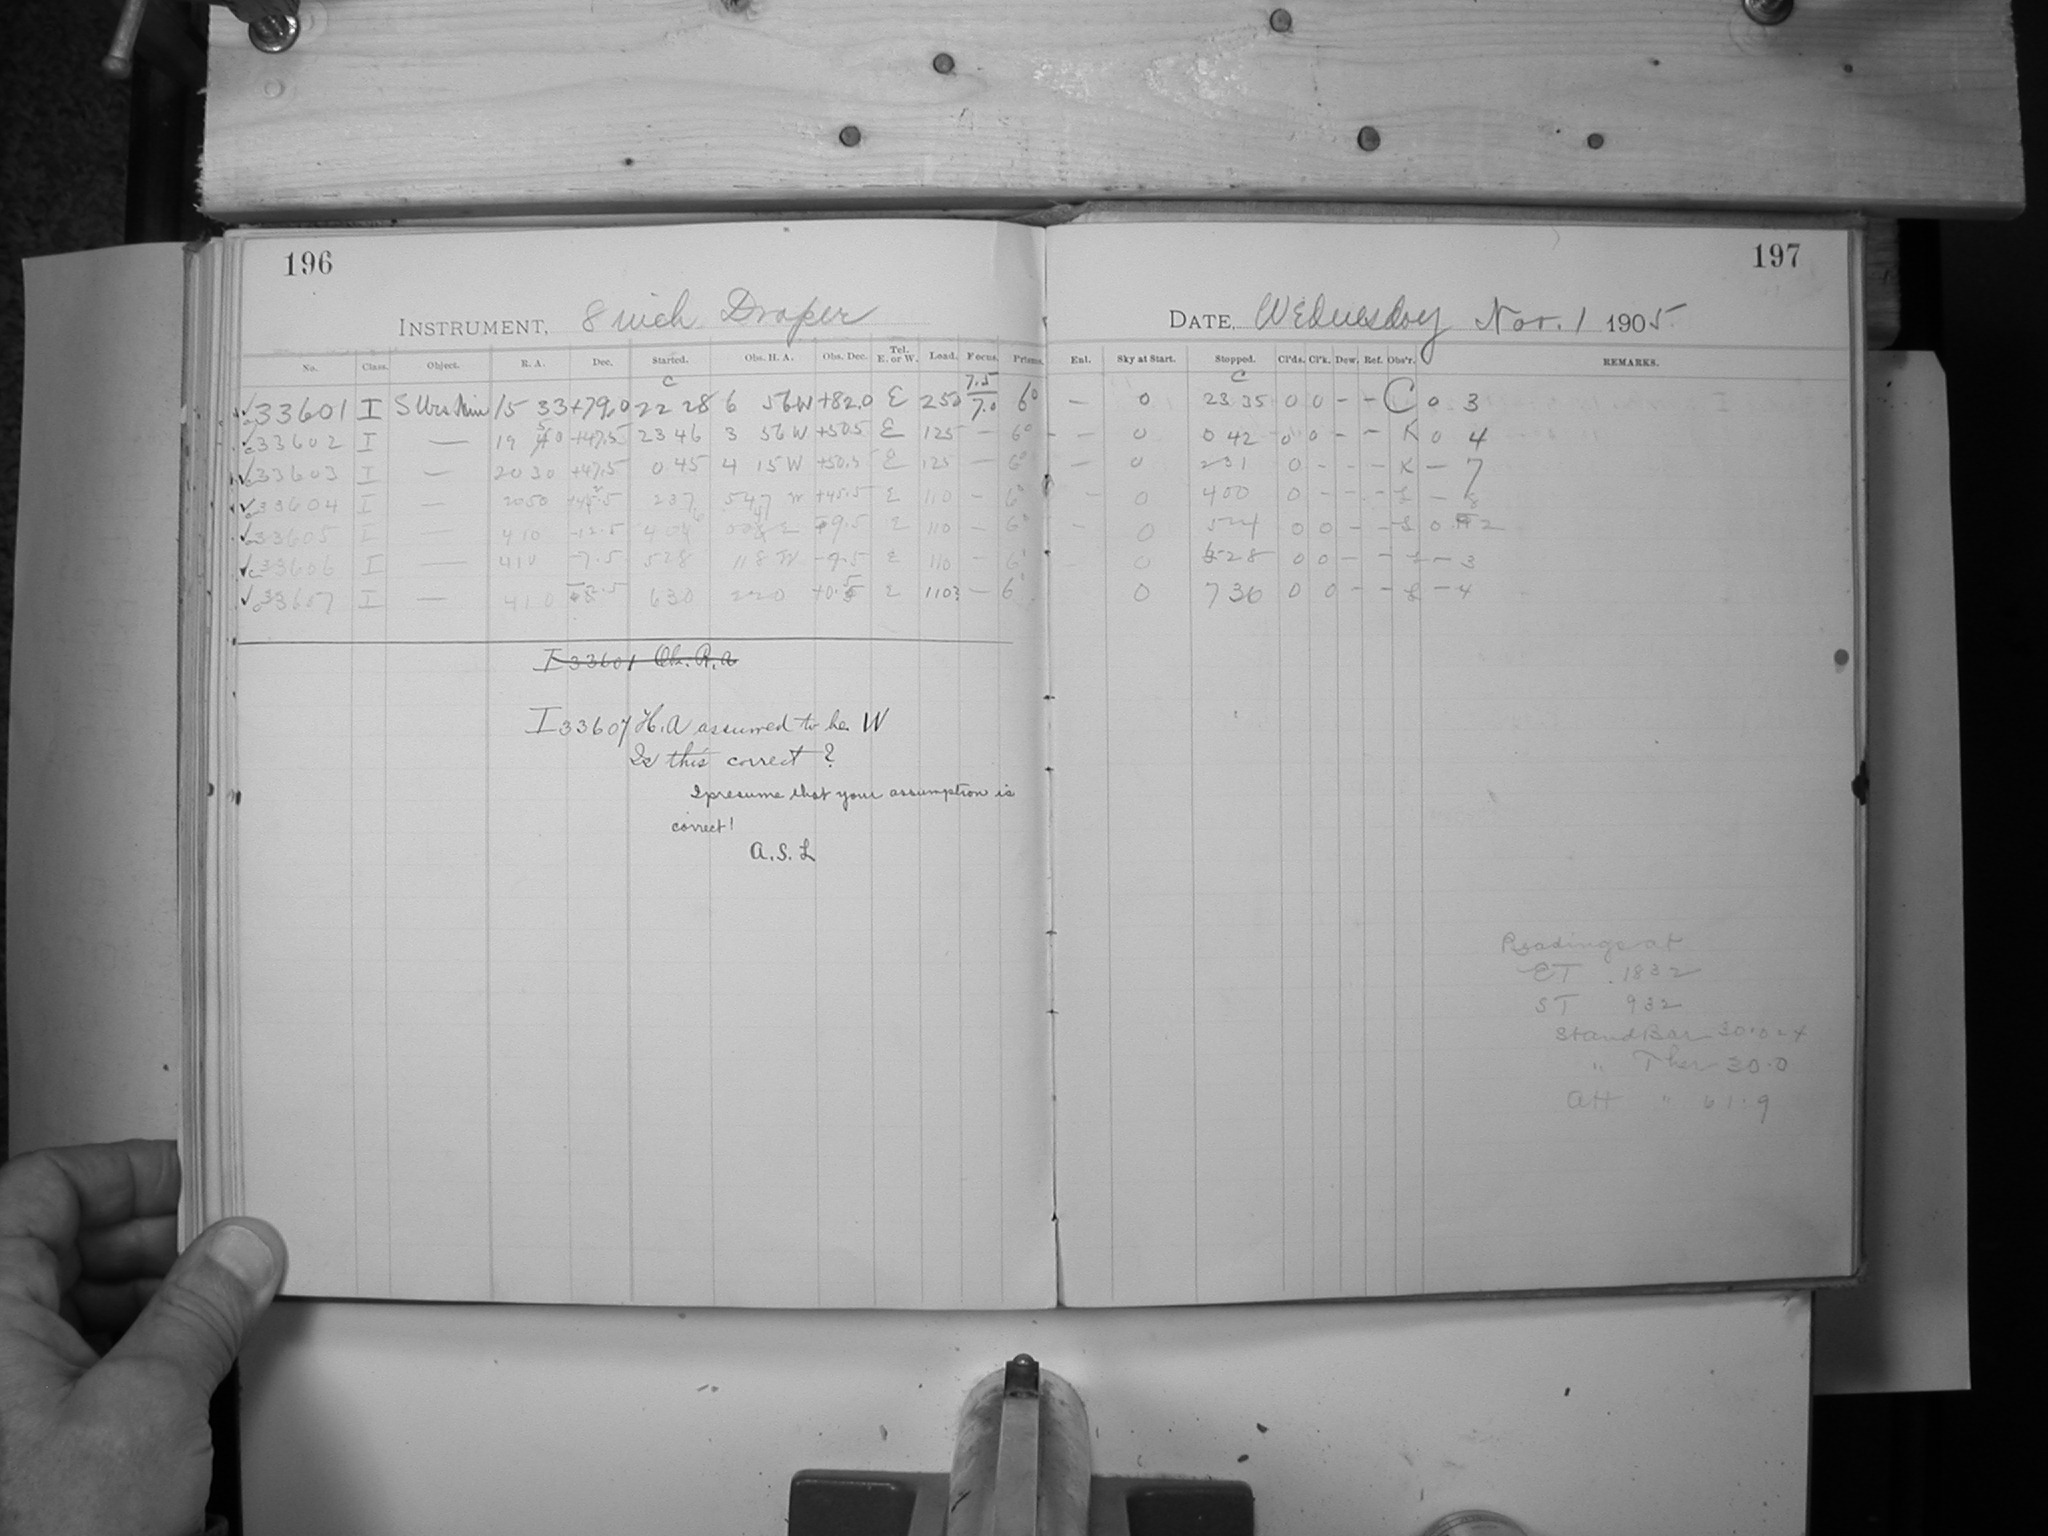 196
197
INSTRUMENT, 8 inch Draper
DATE, Wednesday Nov. 1 1905
No. Class. Object. R. A. Dec. Started. Obs. H. A. Obs. Dec. Tel. E. or W. Load. Focus. Prisms. Enl. Sky at Start. Stopped. Cl'ds. Cl'k. Dew. Ref. Obs'r. REMARKS.
33601 I S Urs Min 15 33 +79.0 22 28 6 56W +82.0 E 250 7.5/7.0 6° — 0 23 35 0 0 - - C 0 3
33602 I — 19 50 +47.5 23 46 3 56W +50.5 E 125 — 6° - - 0 0 42 0 0 - - K 0 4
33603 I — 20 30 +47.5 0 45 4 15W +50.5 E 125 — 6° — 0 2 31 0 - - - K — 7
33604 I — 2050 237 547 W +45.5 E 110 - 6° - 0 400 0 - - - L - 8
33605 I — 410 -12.5 404 E 110 - 6° - 0 524 0 0 - - L 0 2
33606 I — 410 -7.5 528 118 W -4.5 E 110 - 6° 0 628 0 0 - - L - 3
33607 I — 410 -2.5 630 220 +0.5 E 110 - 6° 0 736 0 0 - - L - 4
I 33601 Ob. R.a
I 33607 H.A assumed to be W
Is this correct?
I presume that your assumption is
correct!
A.S.L
Readings at
ET 1832
ST 932
Stand Bar 30.024
" Ther 30.0
Att " 61.9